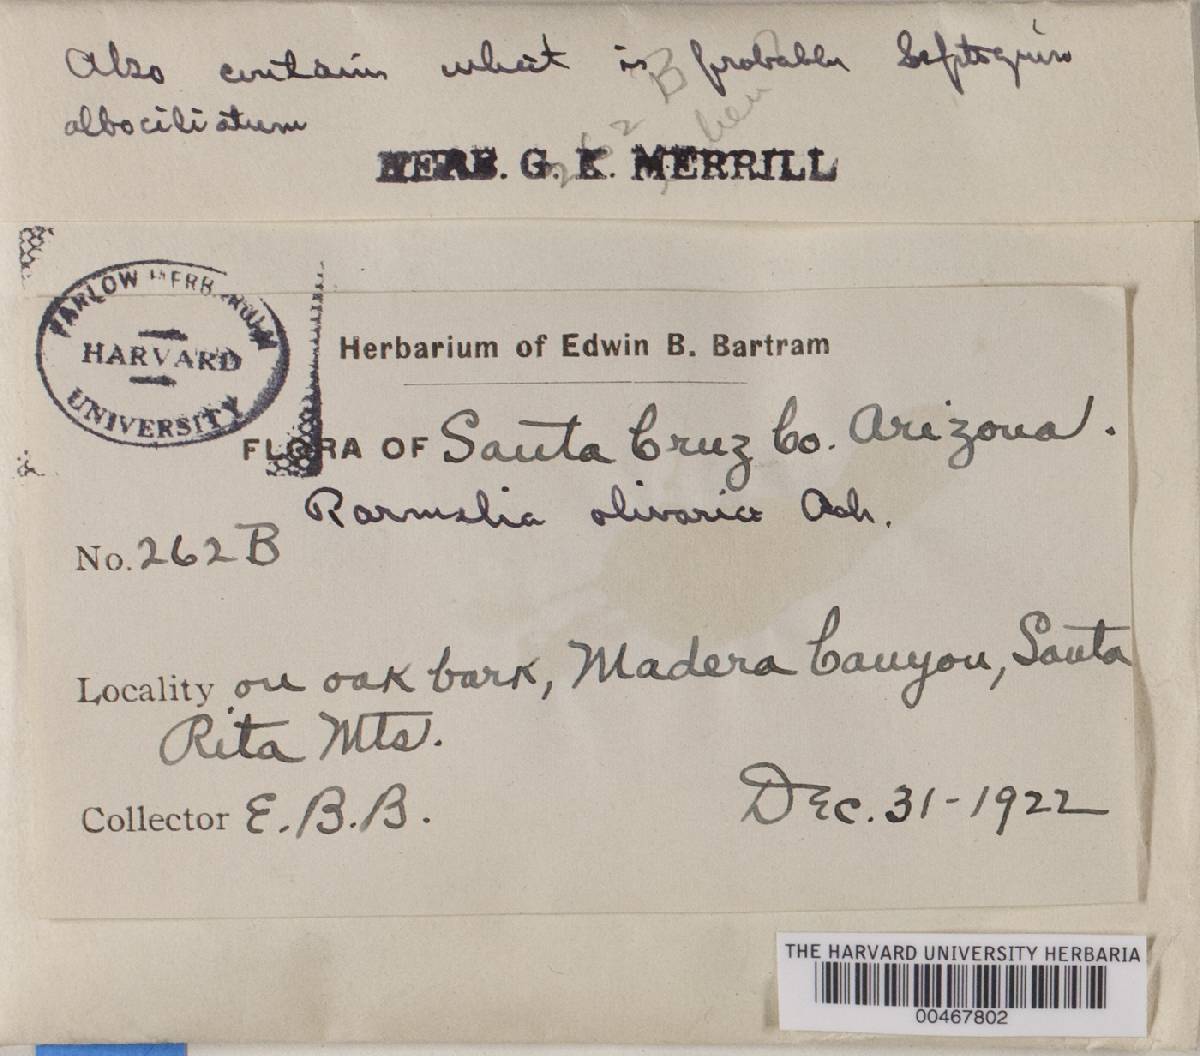 Also contains what is probably Leptogium
albociliatum
262 B
HERB. G. K. MERRILL
FARLOW HERBARIUM
HARVARD
UNIVERSITY
Herbarium of Edwin B. Bartram
FLORA OF Santa Cruz Co. Arizona.
Parmelia olivaria Ach.
No. 262B
Locality on oak bark, Madera Canyon, Santa
Rita Mts.
Collector E.B.B.
Dec. 31-1922
THE HARVARD UNIVERSITY HERBARIA
00467802